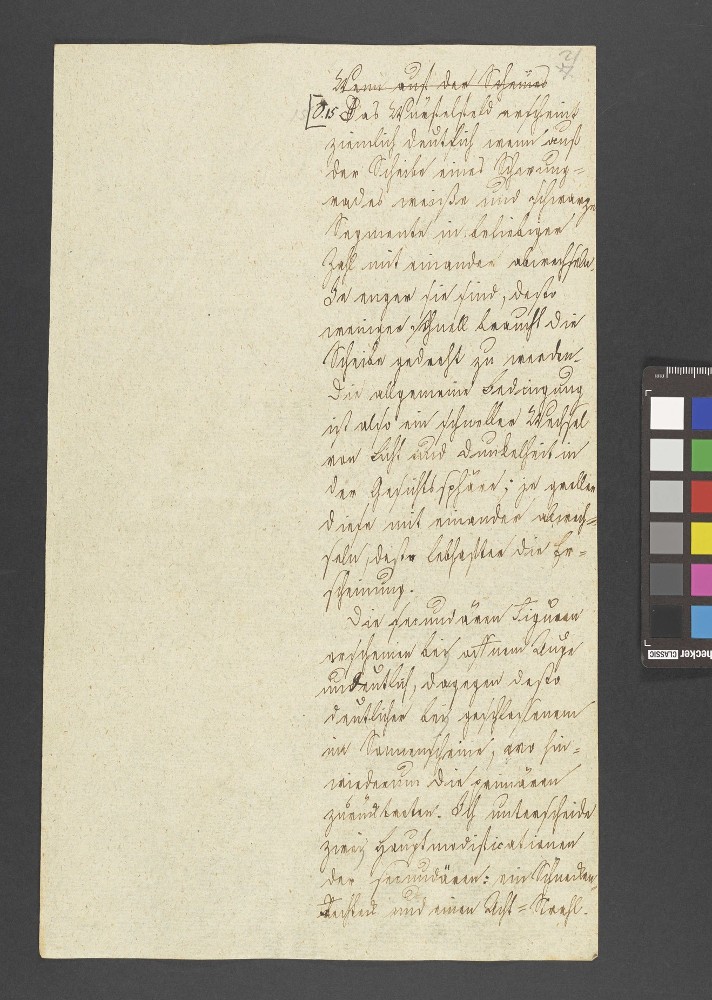 Wenn auf der Scheibe
[§.15 Das Würfelfeld erscheint
ziemlich deutlich wenn auf
der Scheibe eines Schwung-
rades weiße und schwarze
Segmente in beliebiger
Zahl mit einander abwechseln.
Je enger sie sind, desto
weniger schnell braucht die
Scheibe gedreht zu werden.
Die allgemeine Bedingung
ist also ein schneller Wechsel
von Licht und Dunkelheit in
der Gesichtssphäre; je greller
diese mit einander abwech-
seln, desto lebhafter die Er-
scheinung.
Die secundären Figuren
erscheinen bei offnem Auge
undeutlich, dagegen desto
deutlicher bei geschlossenem
im Sonnenscheine, wo hin-
wiederum die primären
zurücktreten. Ich unterscheide
zwei Hauptmodificationen
der secundären: ein Schnecken-
Rechteck und einen Acht-Strahl.